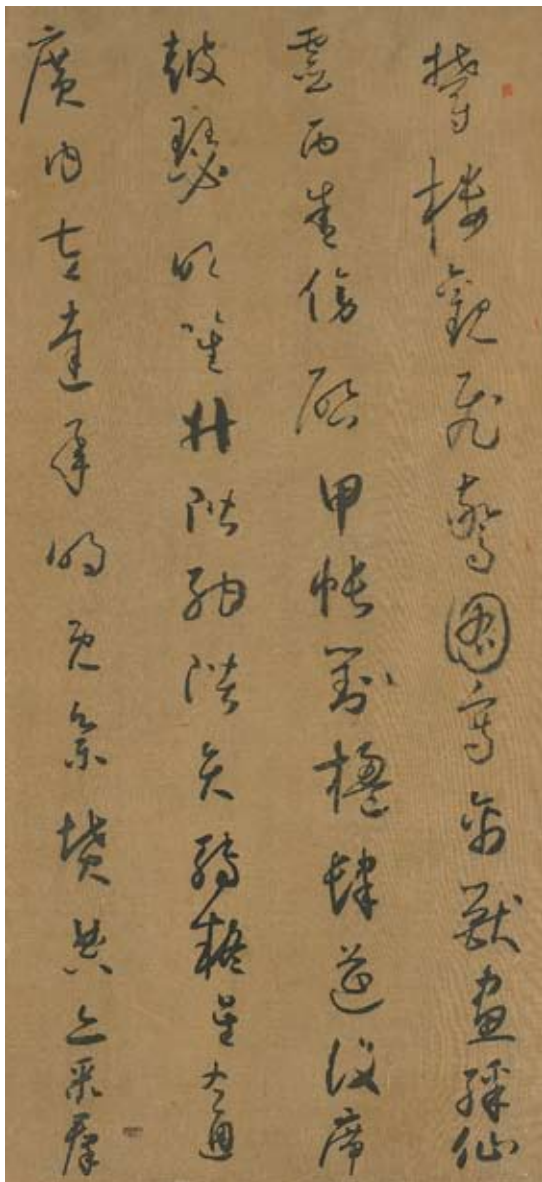 鬱樓觀飛驚圖寫禽獸畫綵仙
靈丙舍傍啟甲帳對楹肆筵設席
鼓瑟吹笙升階納陛弁轉疑星右通
廣內左達承明既集墳典亦聚群